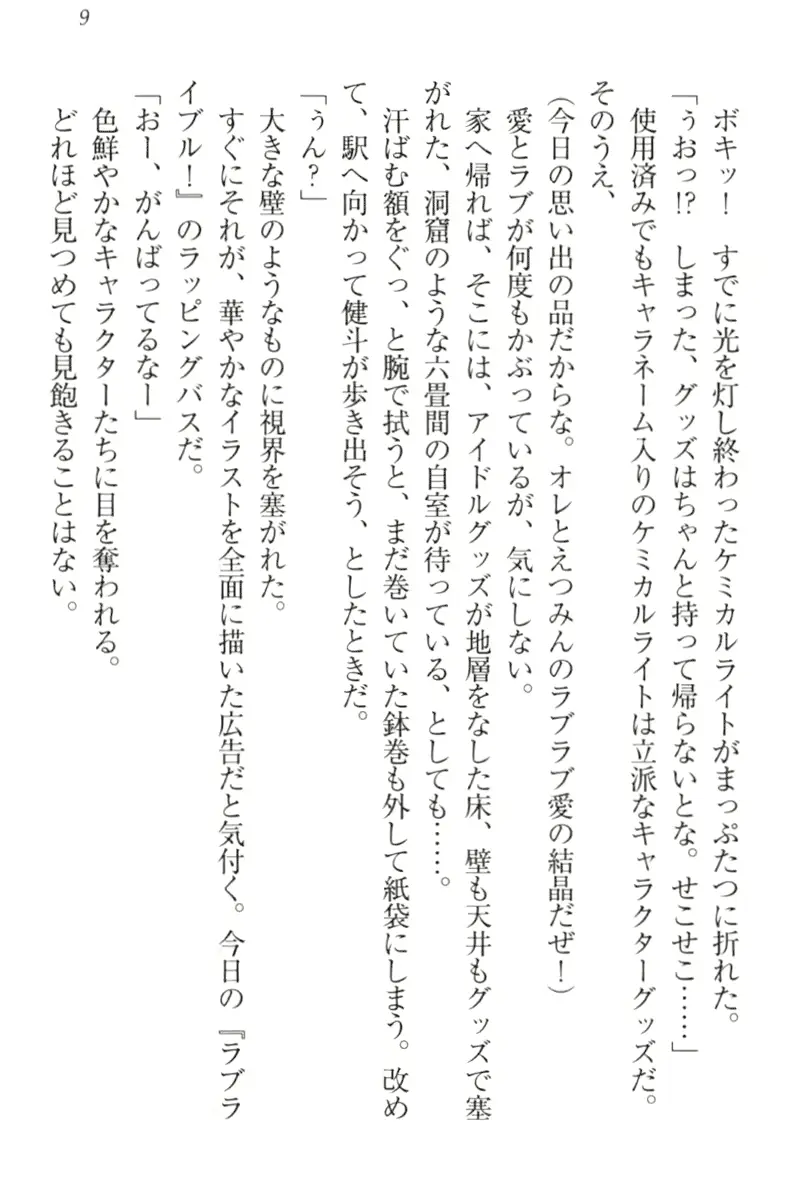 9
ボキッ！　すでに光を灯し終わったケミカルライトがまっぷたつに折れた。
「うおっ!?　しまった、グッズはちゃんと持って帰らないとな。せこせこ……」
使用済みでもキャラネーム入りのケミカルライトは立派なキャラクターグッズだ。
そのうえ、
（今日の思い出の品だからな。オレとえつみんのラブラブ愛の結晶だぜ！）
愛とラブが何度もかぶっているが、気にしない。
家へ帰れば、そこには、アイドルグッズが地層をなした床、壁も天井もグッズで塞
がれた、洞窟のような六畳間の自室が待っている、としても……。
汗ばむ額をぐっ、と腕で拭うと、まだ巻いていた鉢巻も外して紙袋にしまう。改め
て、駅へ向かって健斗が歩き出そう、としたときだ。
「うん？」
大きな壁のようなものに視界を塞がれた。
すぐにそれが、華やかなイラストを全面に描いた広告だと気付く。今日の『ラブラ
イブル！』のラッピングバスだ。
「おー、がんばってるなー」
色鮮やかなキャラクターたちに目を奪われる。
どれほど見つめても見飽きることはない。